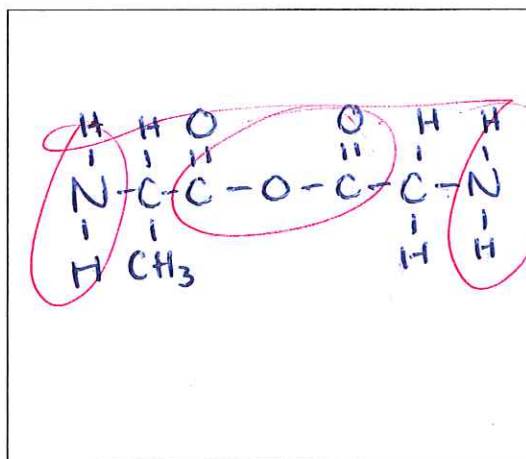 H H O O H H
N-C-C-O-C-C-N
H CH₃ H H